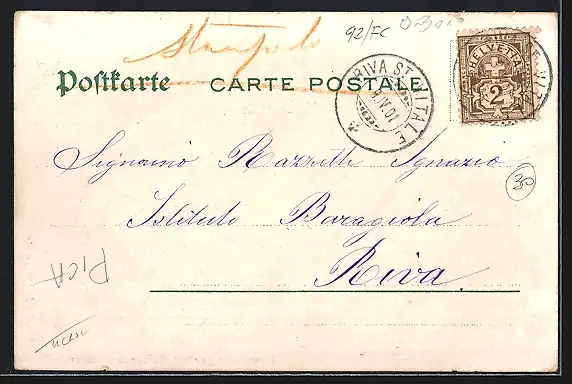 Stampato
92/FC
Postkarte CARTE POSTALE
RIVA ST. VITALE
9.IV.01
HELVETIA
2
Signorino Razzetti Ignazio
30
Istituto Baragiola
Riva.
PICA